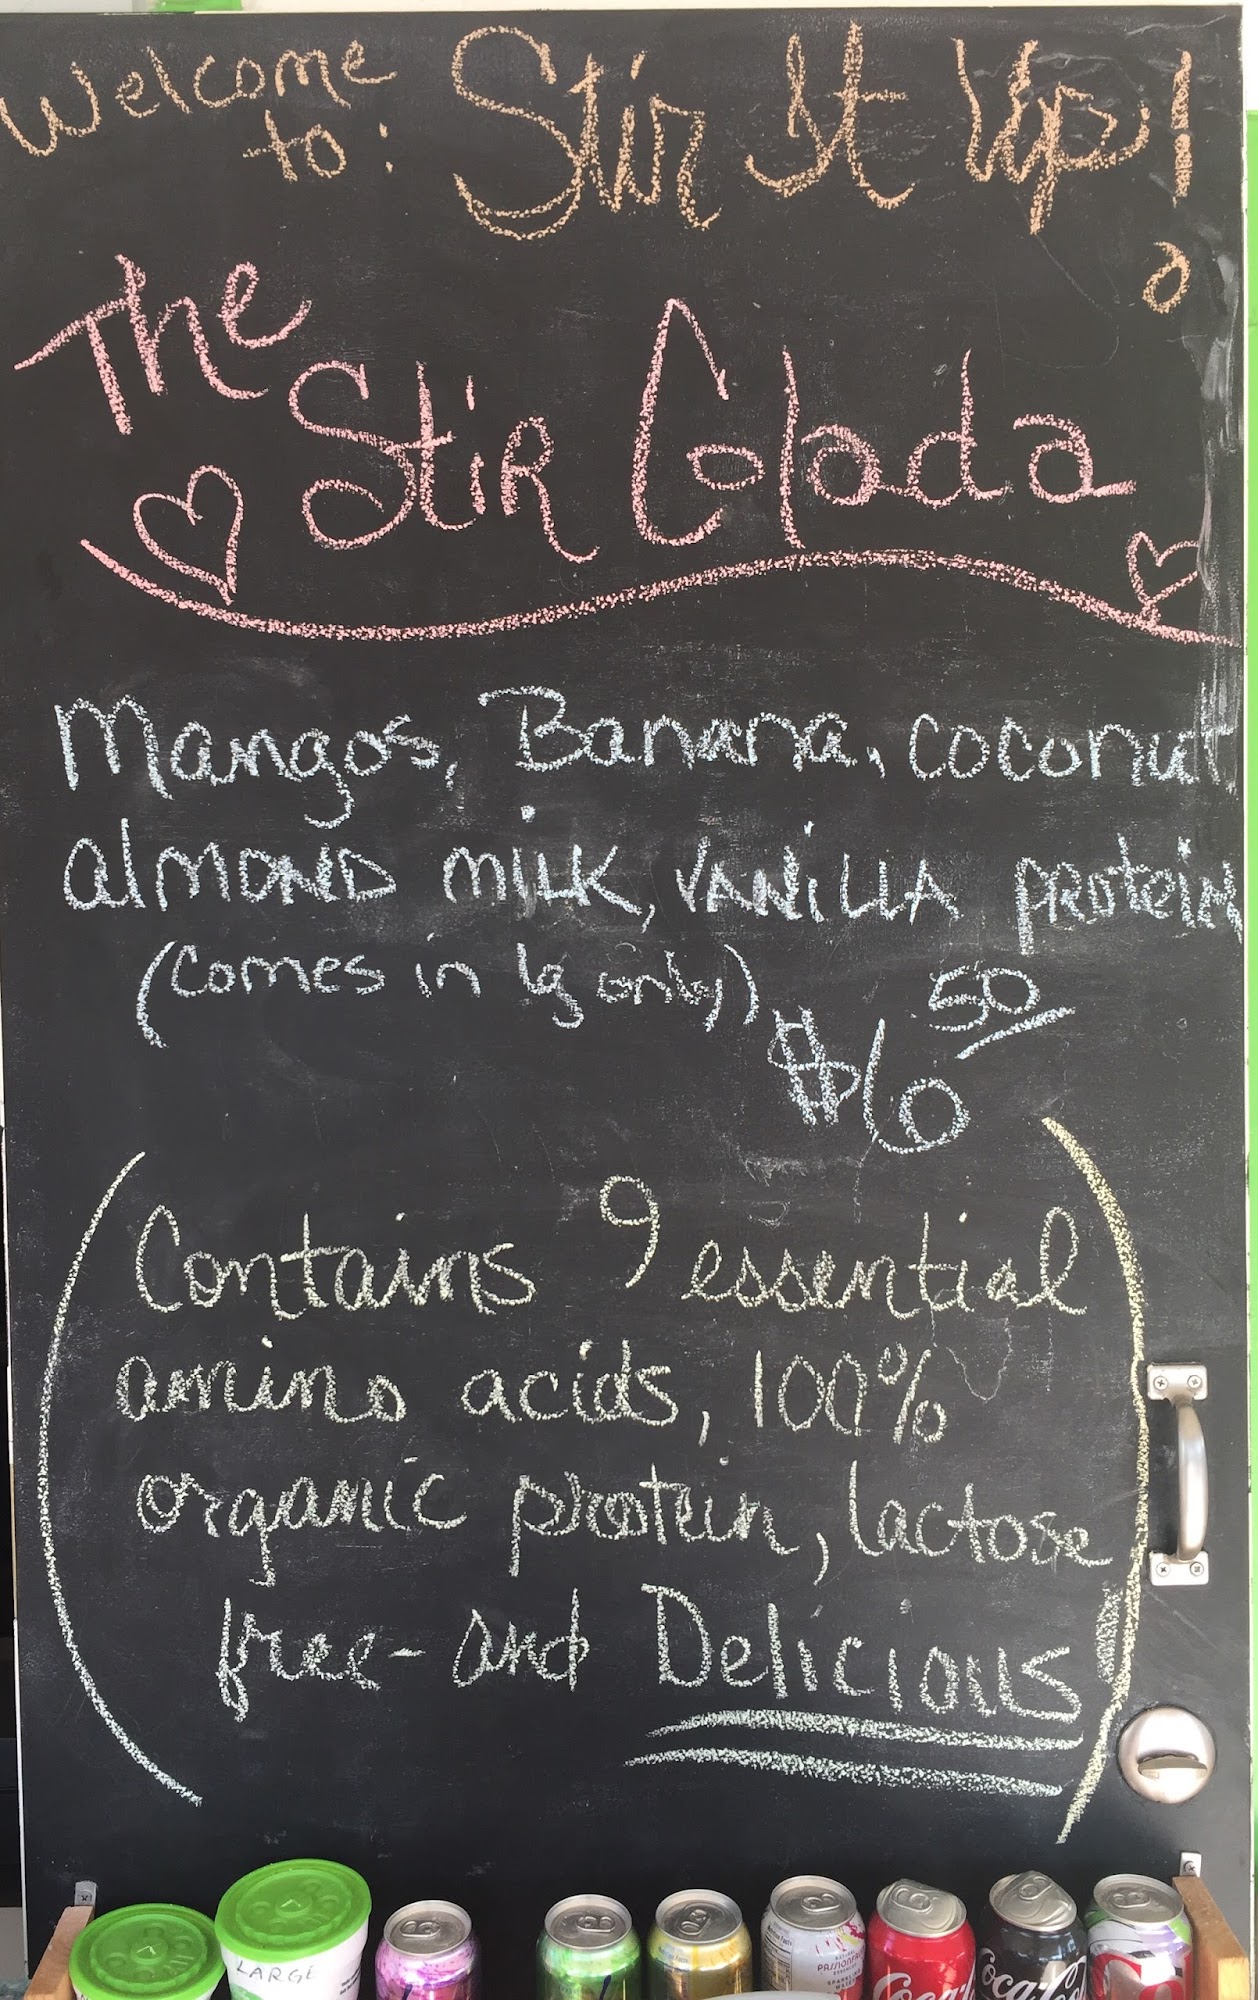 Welcome to: Stir It Up!
The
Stir Colada
Mangos, Banana, coconut
almond milk, vanilla protein
(Comes in lg only)
$6 50
(Contains 9 essential
amino acids, 100%
organic protein, lactose
free - and Delicious!)
LARGE
PASSIONFRUIT
SPARKLING
WATER
Coca-Cola
Coca-Cola